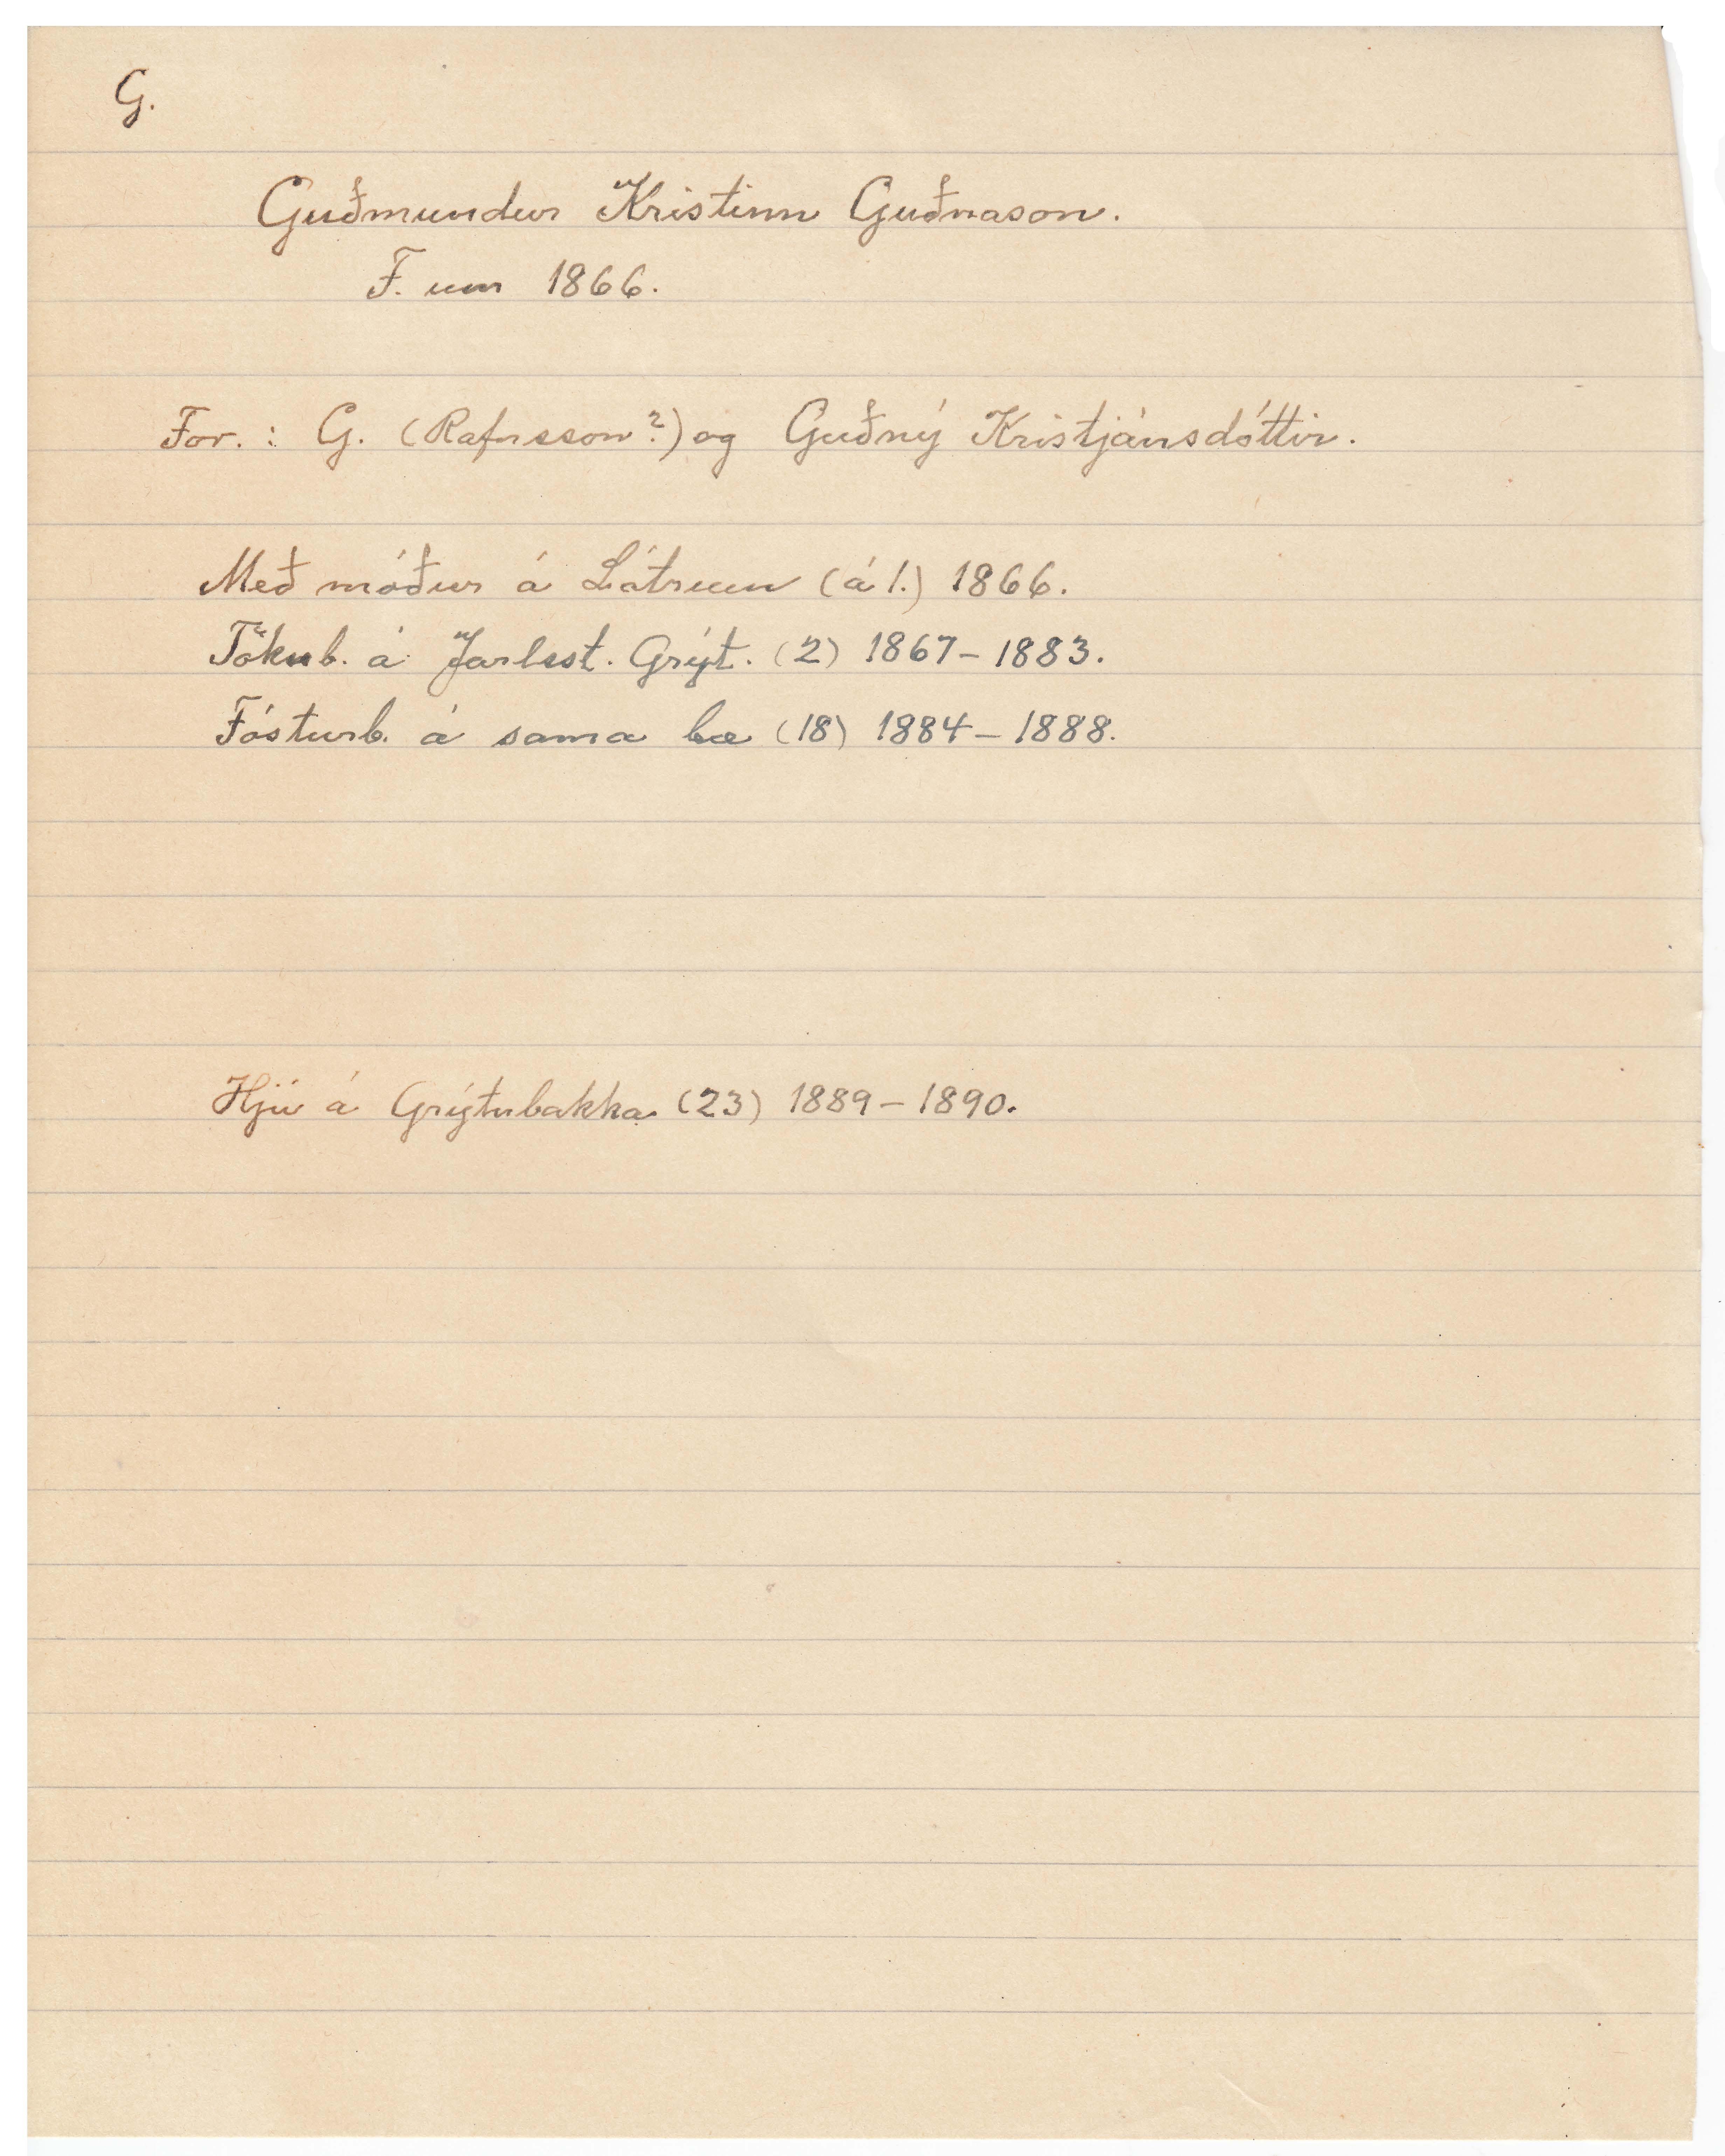 G.
Guðmundur Kristinn Guðnason.
F. um 1866.
For.: G. (Rafnsson?) og Guðný Kristjánsdóttir.
Með móður á Látrum (á 1.) 1866.
Tökub. á Jarlsst. Grýt. (2) 1867-1883.
Fósturb. á sama bæ (18) 1884-1888.
Hjú á Grýtubakka (23) 1889-1890.